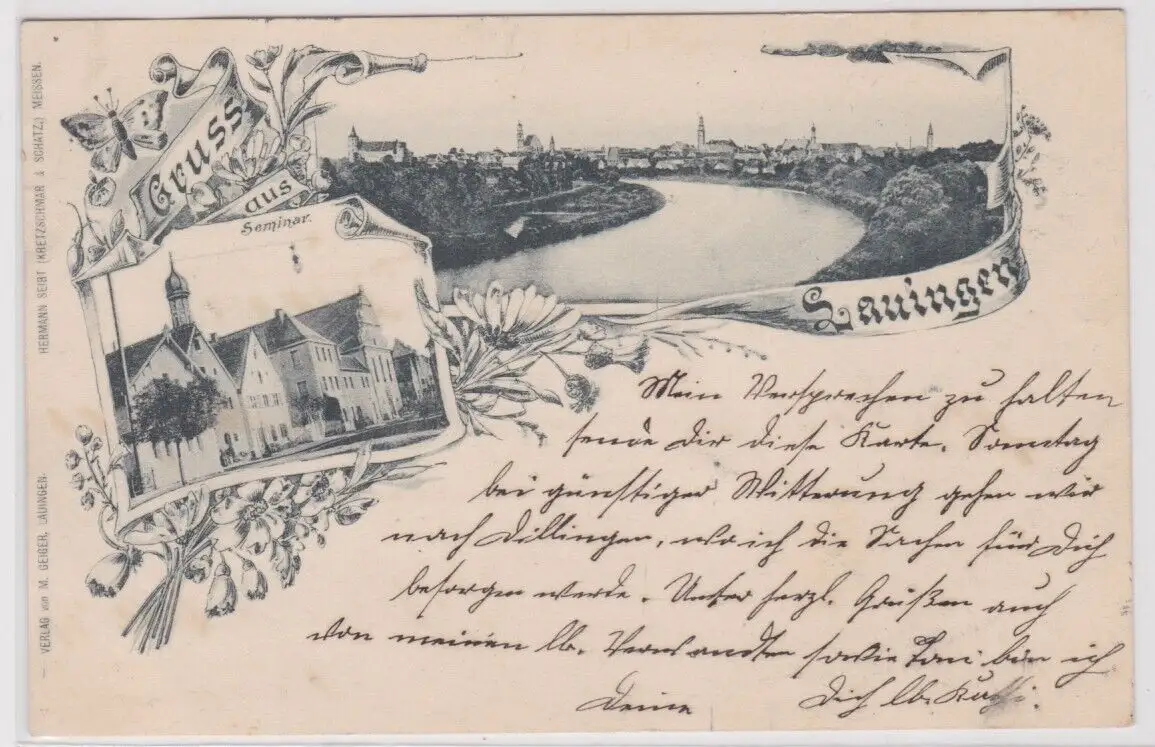 Gruss
aus
Seminar.
Lauingen
Mein Versprechen zu halten
sende Dir diese Karte. Sonntag
bei günstiger Witterung gehen wir
nach Dillingen, wo ich die Sachen für Dich
besorgen werde. Unter herzl. Grüßen auch
von meinen lb. Verwandten sowie Toni bin ich
Deine Dich lb.
HERMANN SEIBT (KRETZSCHMAR & SCHATZ,) MEISSEN.
— VERLAG von M. GEIGER, LAUINGEN.